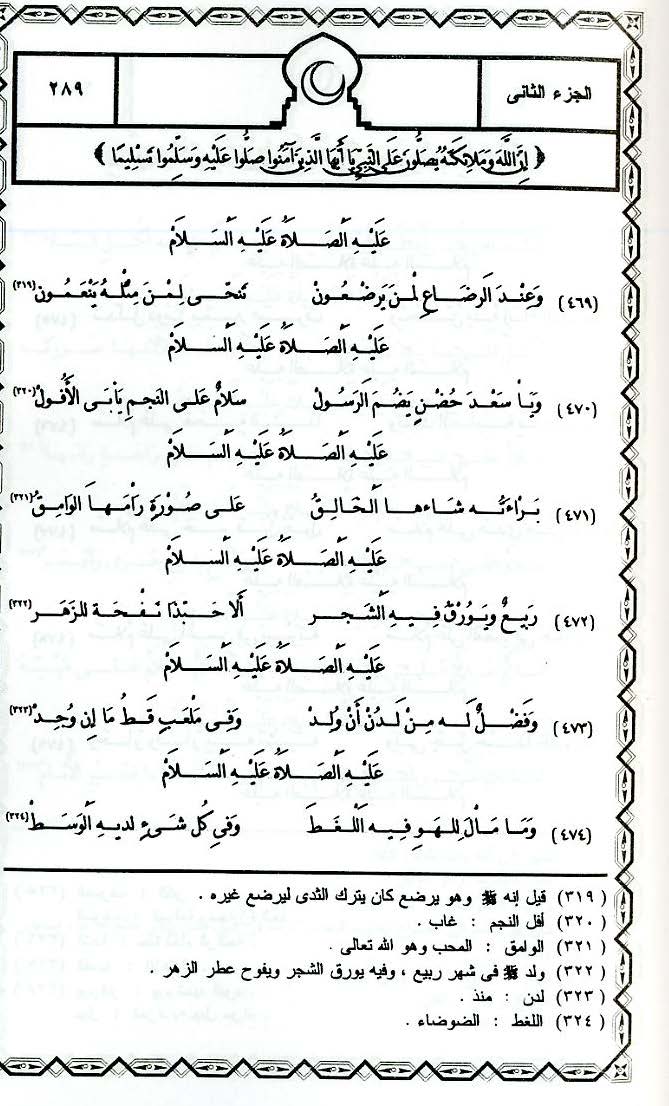 الجزء الثانى
٢٨٩
﴿ إِنَّ اللَّهَ وَمَلَائِكَتَهُ يُصَلُّونَ عَلَى النَّبِيِّ يَا أَيُّهَا الَّذِينَ آمَنُوا صَلُّوا عَلَيْهِ وَسَلِّمُوا تَسْلِيمًا ﴾
عَلَيْهِ الصَّلَاةُ عَلَيْهِ السَّلَامْ
(٤٦٩) وَعِنْدَ الرِضَاعِ لمَنْ يَرضَعُونْ تَنحَّى لِمَنْ مِثْلهُ يَنْعَمُونْ (٣١٩)
عَلَيْهِ الصَّلَاةُ عَلَيْهِ السَّلَامْ
(٤٧٠) وَيَا سَعْدَ حُضْنٍ يَضُمَ الرَسُولْ سَلَامٌ عَلى النَجمِ يَأبَى الأُفُولْ (٣٢٠)
عَلَيْهِ الصَّلَاةُ عَلَيْهِ السَّلَامْ
(٤٧١) بَرَاءَتُه شَاءهَا الْخَالِقُ عَلى صُوْرَةٍ رَامَهَا الوَامِقُ (٣٢١)
عَلَيْهِ الصَّلَاةُ عَلَيْهِ السَّلَامْ
(٤٧٢) رَبِيعٌ وَيُورْقُ فِيهِ الشَجرِ أَلَا حَبّذَا نَفْحَة للزَهَر (٣٢٢)
عَلَيْهِ الصَّلَاةُ عَلَيْهِ السَّلَامْ
(٤٧٣) وَفَضْلٌ لَه مِنْ لَدُنْ أَنْ وُلِدْ وَفِى مَلْعَبٍ قَطُ مَا إِن وُجِدْ (٣٢٣)
عَلَيْهِ الصَّلَاةُ عَلَيْهِ السَّلَامْ
(٤٧٤) وَمَا مَالَ لِلهَوِ فيِه اللَّغَطَ وَفى كُل شَىءٍ لديهِ الْوَسَطْ (٣٢٤)
(٣١٩) قيل إنه ﷺ وهو يرضع كان يترك الثدى ليرضع غيره .
(٣٢٠) أفل النجم : غاب .
(٣٢١) الوامق : المحب وهو الله تعالى .
(٣٢٢) ولد ﷺ فى شهر ربيع ، وفيه يورق الشجر ويفوح عطر الزهر .
(٣٢٣) لدن : منذ .
(٣٢٤) اللغط : الضوضاء .